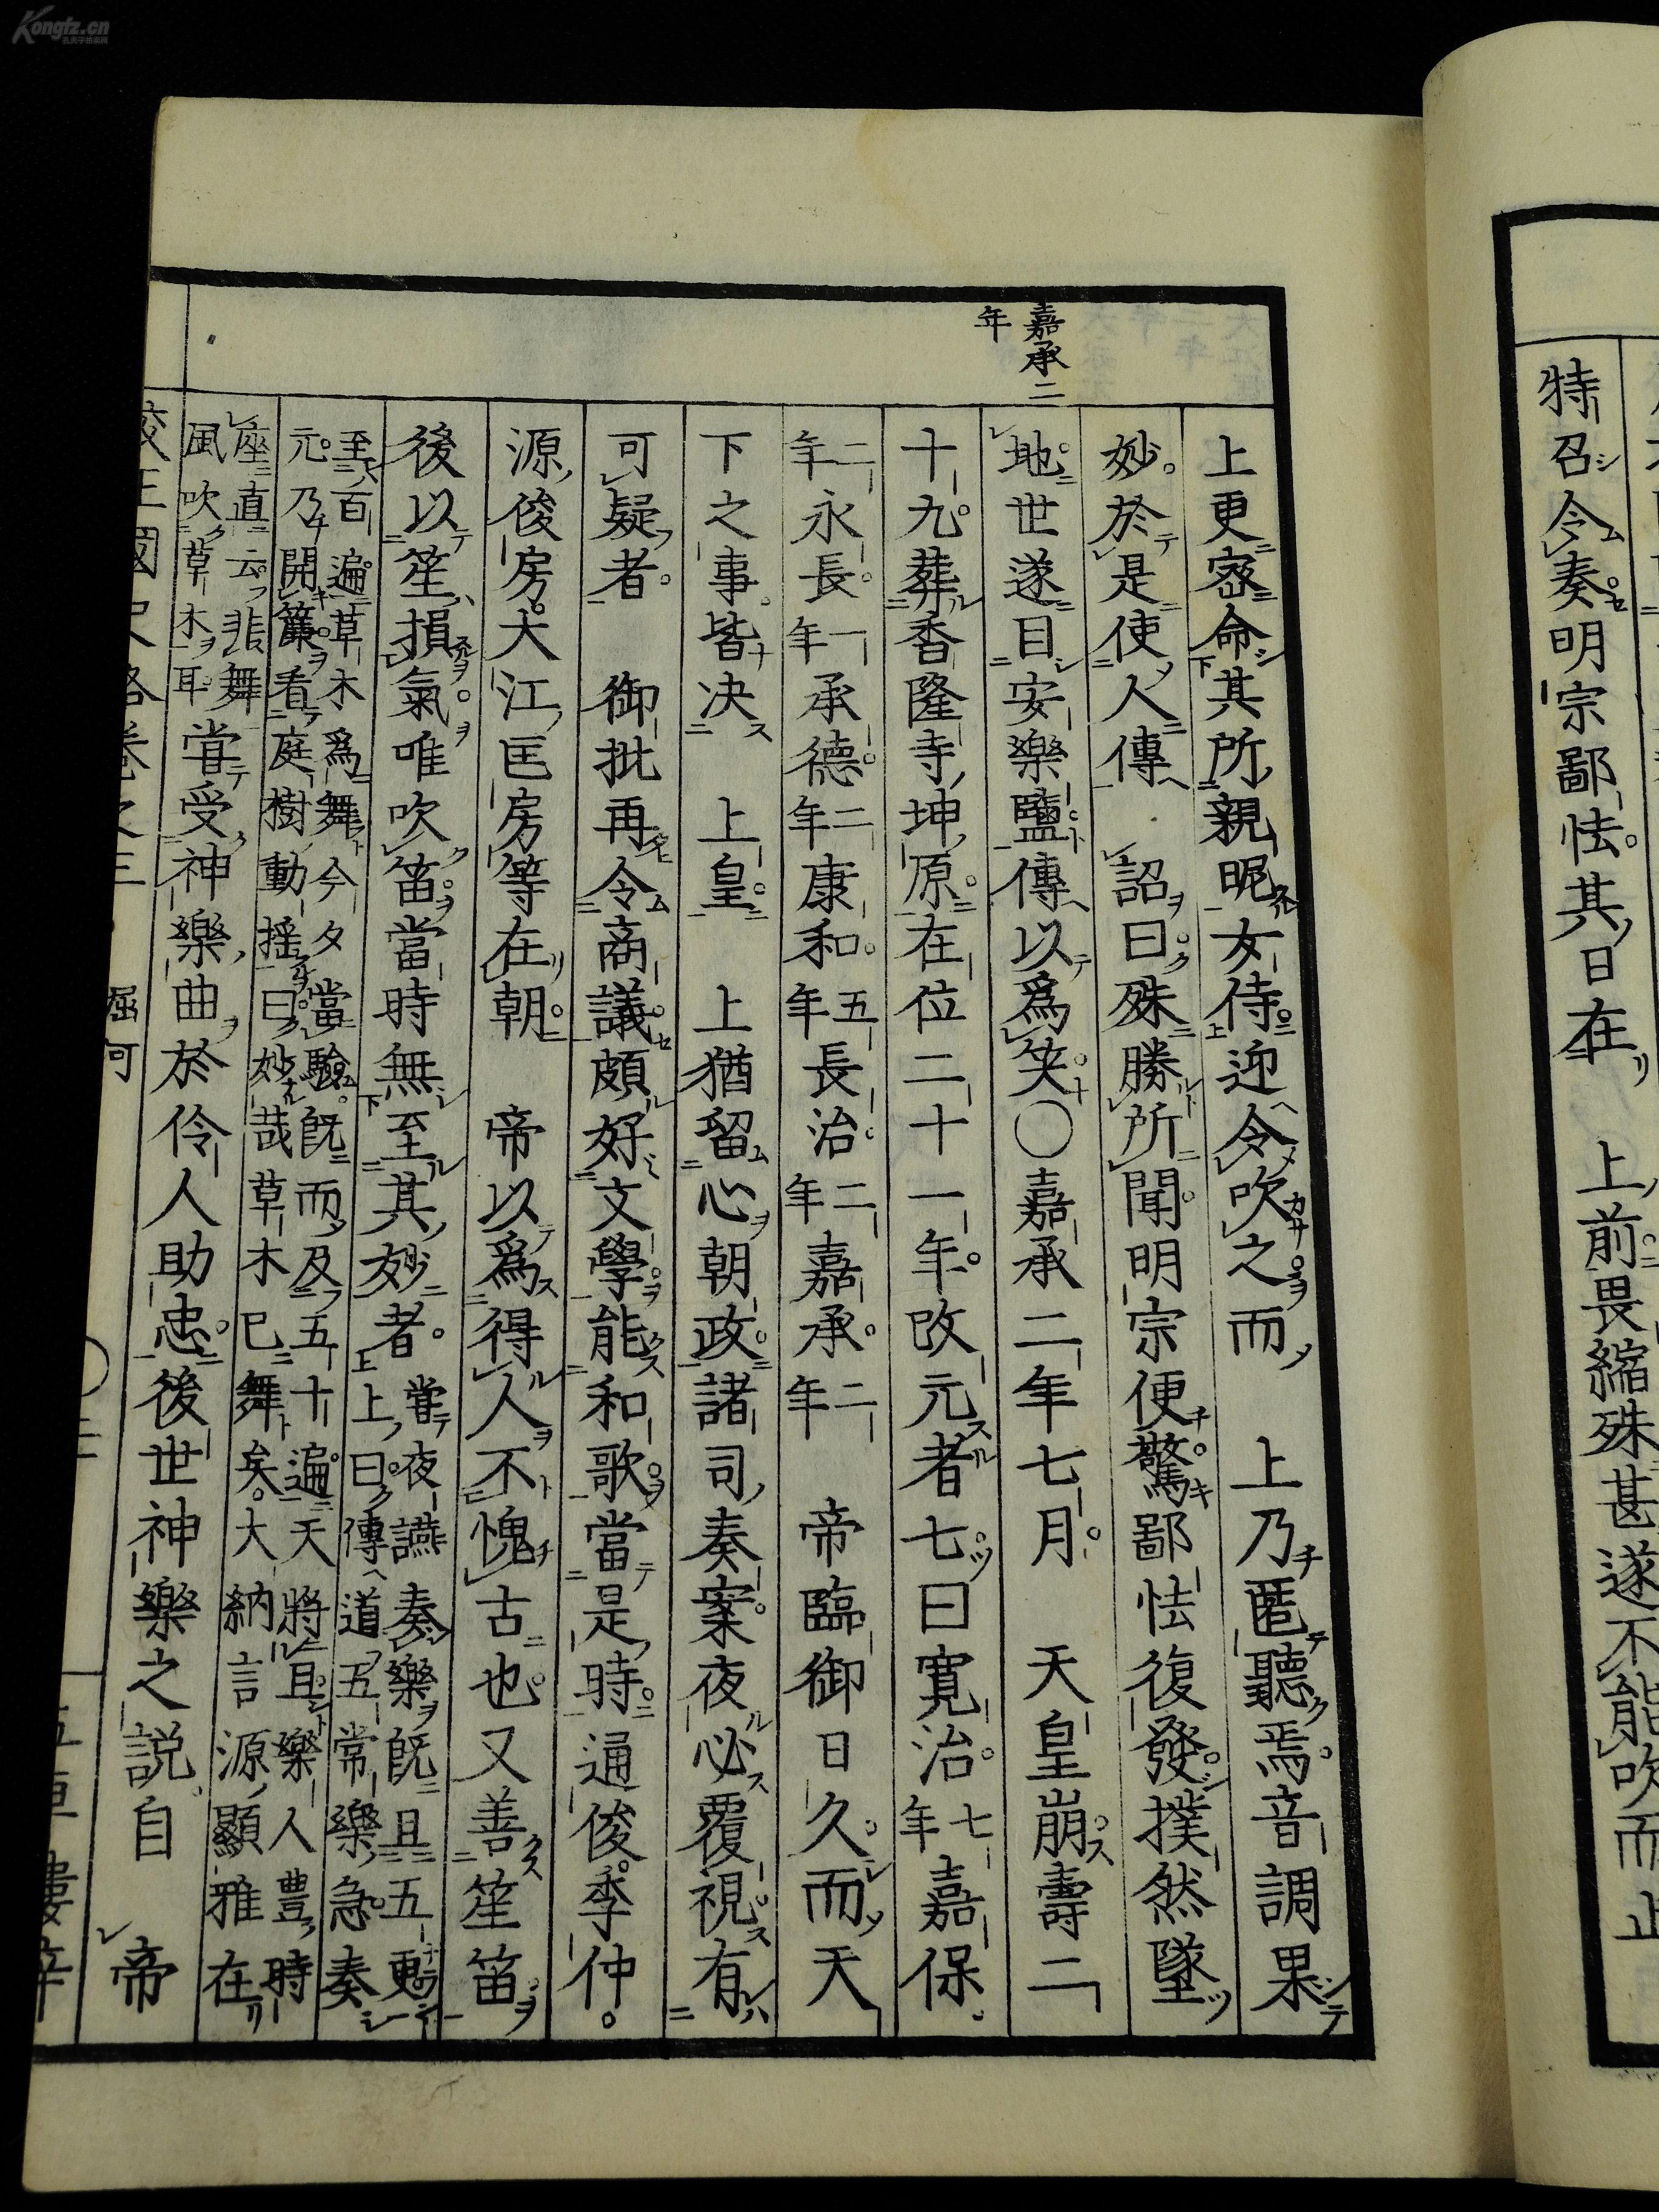 特召令奏明宗鄙怯其日在　上前畏縮殊甚遂不能吹而止
嘉承二
年
上更密命其所親昵女侍迎令吹之而　上乃匿聽焉音調果
妙於是使人傳　詔曰殊勝所聞明宗便驚鄙怯復發撲然墜
地世遂目安樂鹽傳以爲笑〇嘉承二年七月　天皇崩壽二
十九葬香隆寺坤原在位二十一年改元者七曰寬治七年嘉保
二年永長一年承德二年康和五年長治二年嘉承二年　帝臨御日久而天
下之事皆决　上皇　上猶留心朝政諸司奏案夜必覆視有
可疑者　御批再令商議頗好文學能和歌當是時通俊季仲
源俊房大江匡房等在朝　帝以爲得人不愧古也又善笙笛
後以笙損氣唯吹笛當時無至其妙者
嘗夜讌奏樂既且五更
上曰傳道五常樂急奏
至百遍草木爲舞今夕當驗既而及五十遍天將且樂人豊時
元乃開簾看庭樹動搖曰妙哉草木已舞矣大納言源顯雅在
座直云非舞
風吹草木耳
嘗受神樂曲於伶人助忠後世神樂之説自　帝
校正國史略卷之三　堀河